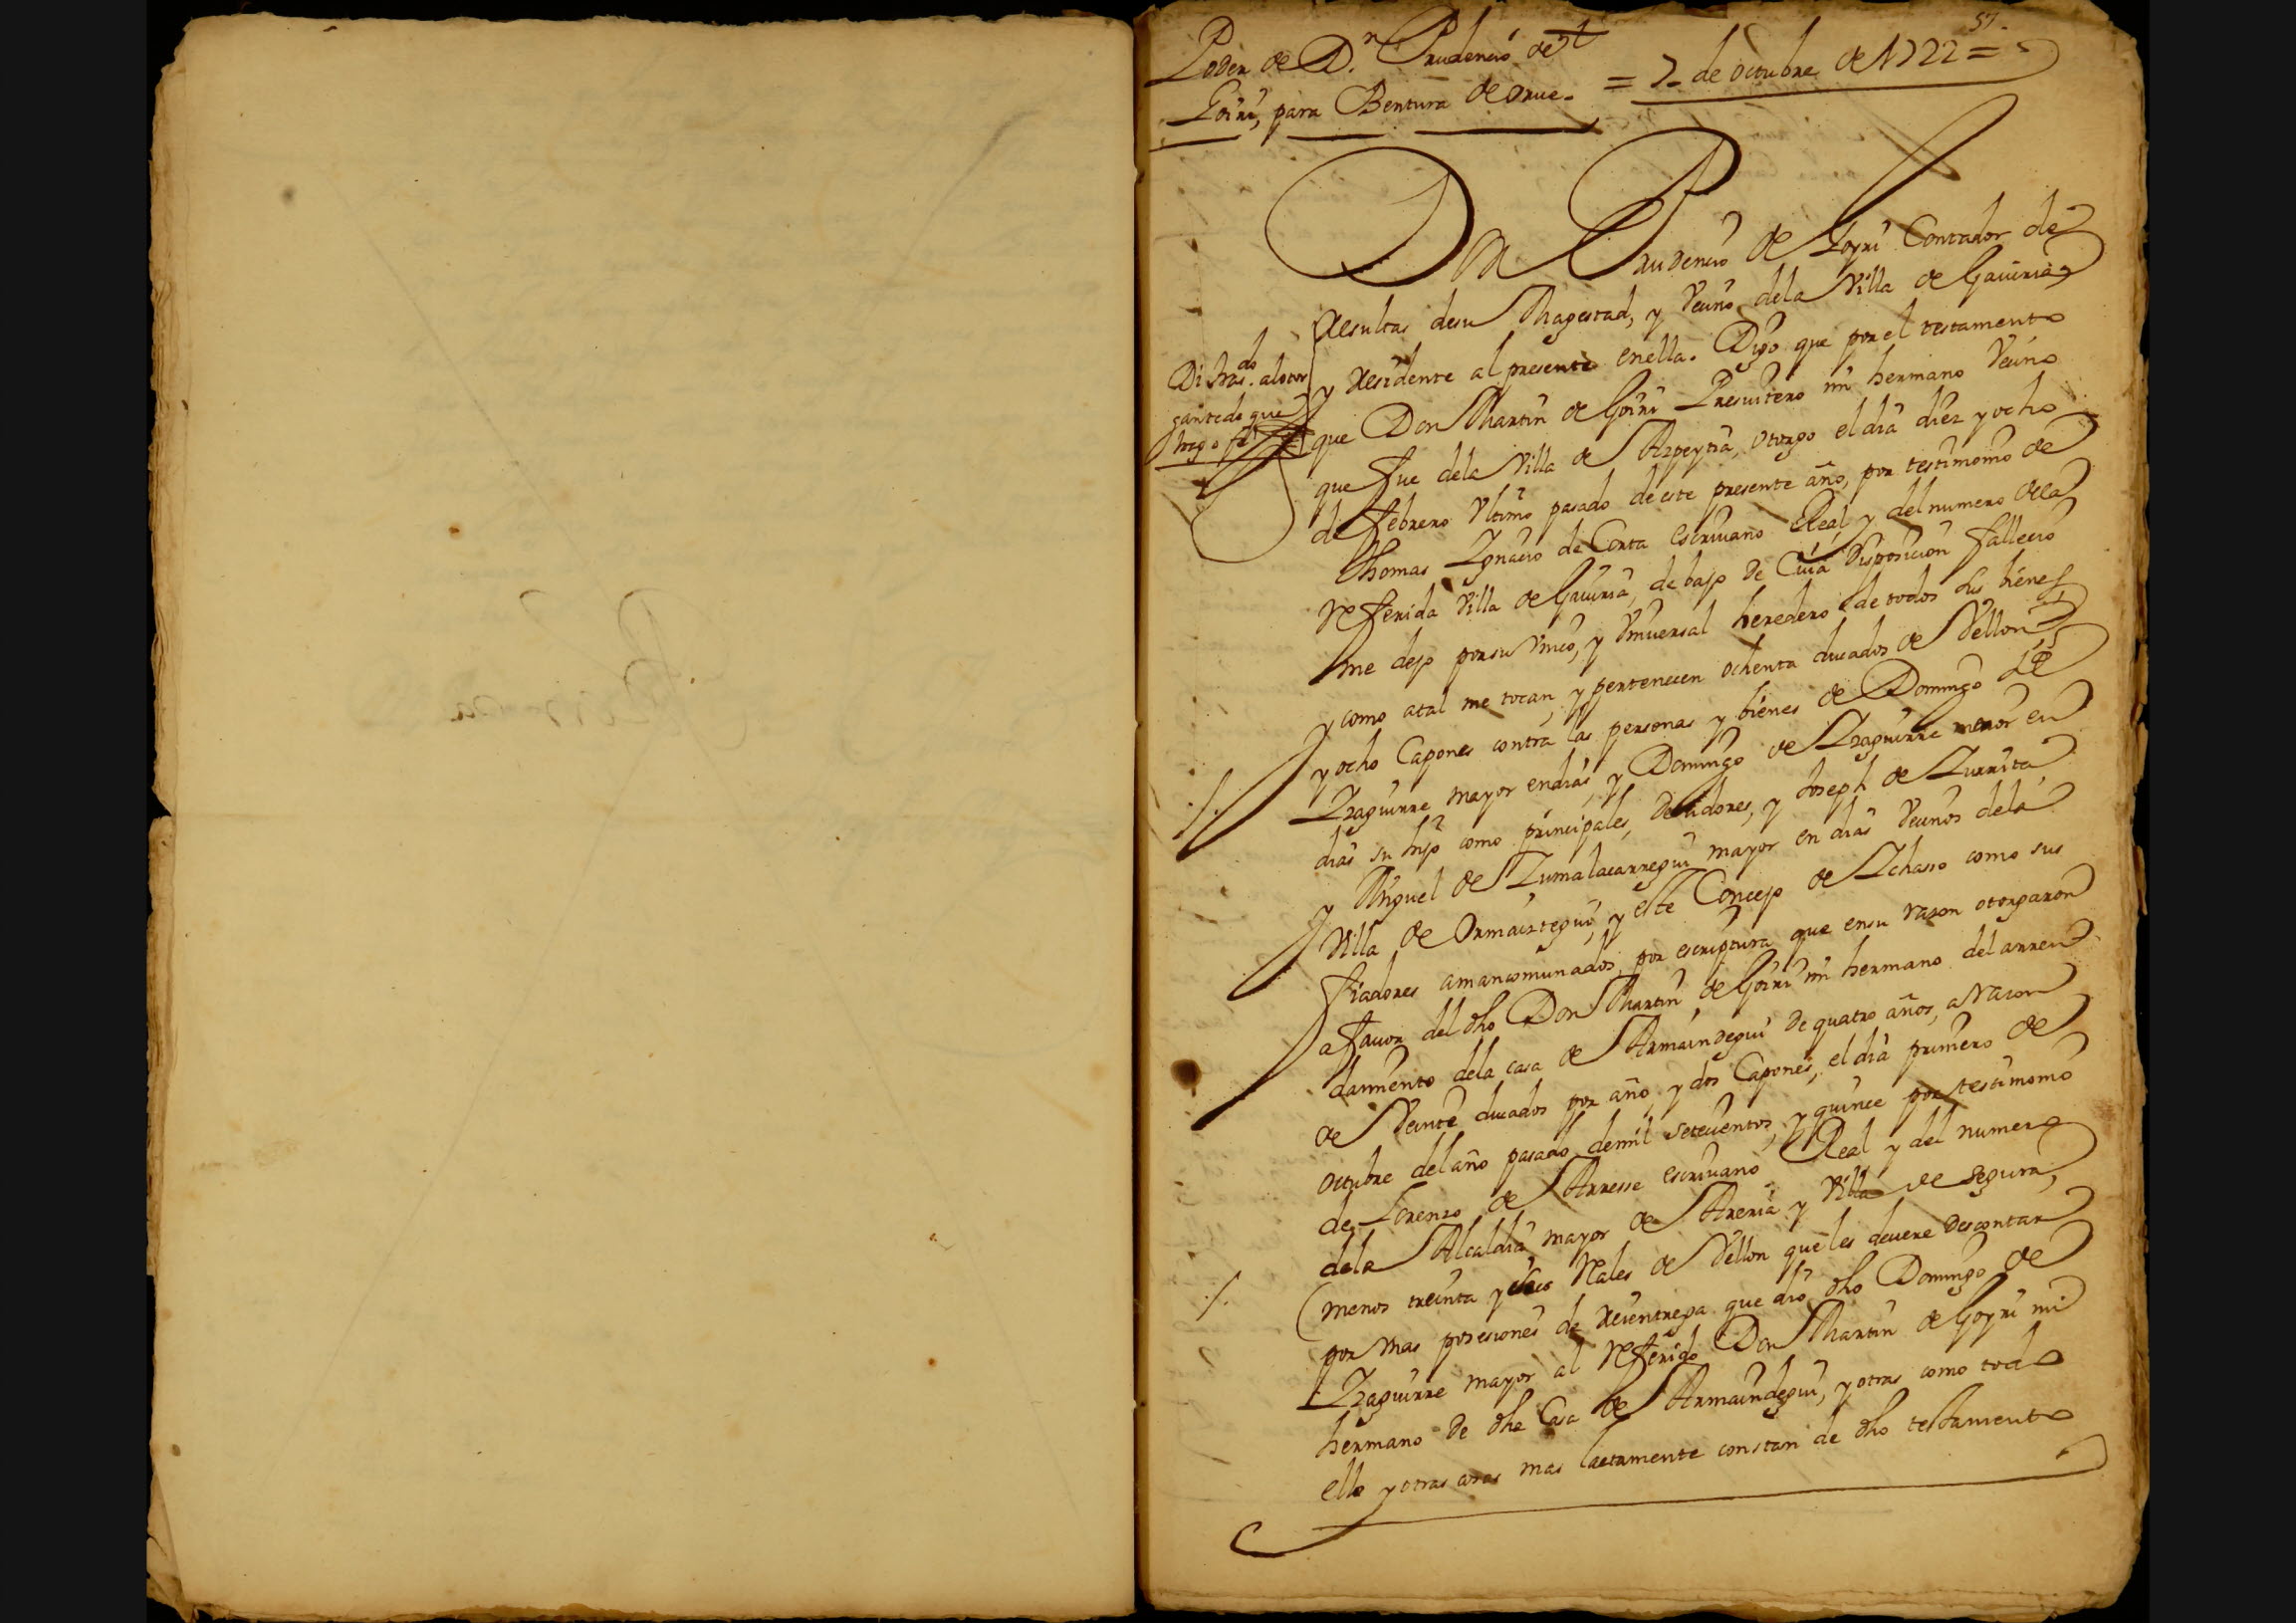 57
Poder de D.n Prudencio de
Goiri, para Bentura de orue.
= 7 de octubre de 1722 =
Don Prudencio de Goyri Contador de
Resultas desu Magestad, y Vecino dela Villa de Gauiria,
y Residente al presente enella. Digo que por el testamento
que Don Martin de Goiri Presuitero mi hermano Vecino
que fue dela Villa de Azpeytia, otorgo el dia diez y ocho
de febrero Vltimo pasado de este presente año, por testimonio de
Thomas Ygnacio de Corta escriuano Real y del numero dela
Referida Villa de Gauiria, de bajo de Cuia Disposicion fallecio
me dejo por su Vnico, y Vniuersal heredero de todos sus bienes
y como atal me tocan, y pertenecen ochenta ducados de Vellon
y ocho Capones contra las personas y bienes de Domingo de
Yzaguirre mayor endias, y Domingo de Yzaguirre menor en
dias su hijo como principales, Deudores, y Joseph de Zurrita
y Miguel de Zumalacarregui mayor en dias Vecinos dela
Villa de Ormaiztegui, y este Concejo de Ychasso como sus
fiadores amancomunados, por escriptura que ensu razon otorgaron
afauor del dho Don Martin de Goiri mi hermano del arren
damiento dela casa de Armaindegui de quatro años, aRacon
de Veinte ducados por año, y dos Capones, el dia primero de
octubre del año pasado demil setecientos, y quince por testimonio
de Lorenzo de Arresse escriuano Real y del numero
dela Alcaldia mayor de Areria y Villa de Segura,
(menos treinta y seis Rales de Vellon que les deuere Descontar
por mas posesiones de Reientrega que dio dho Domingo de
Yzaguirre mayor al Referido Don Martin de Goyri mi
hermano de dha Casa de Armaindegui, y otras como todo
ello y otras cosas mas laetamente constan de dho testamento
gante de que
hago fe